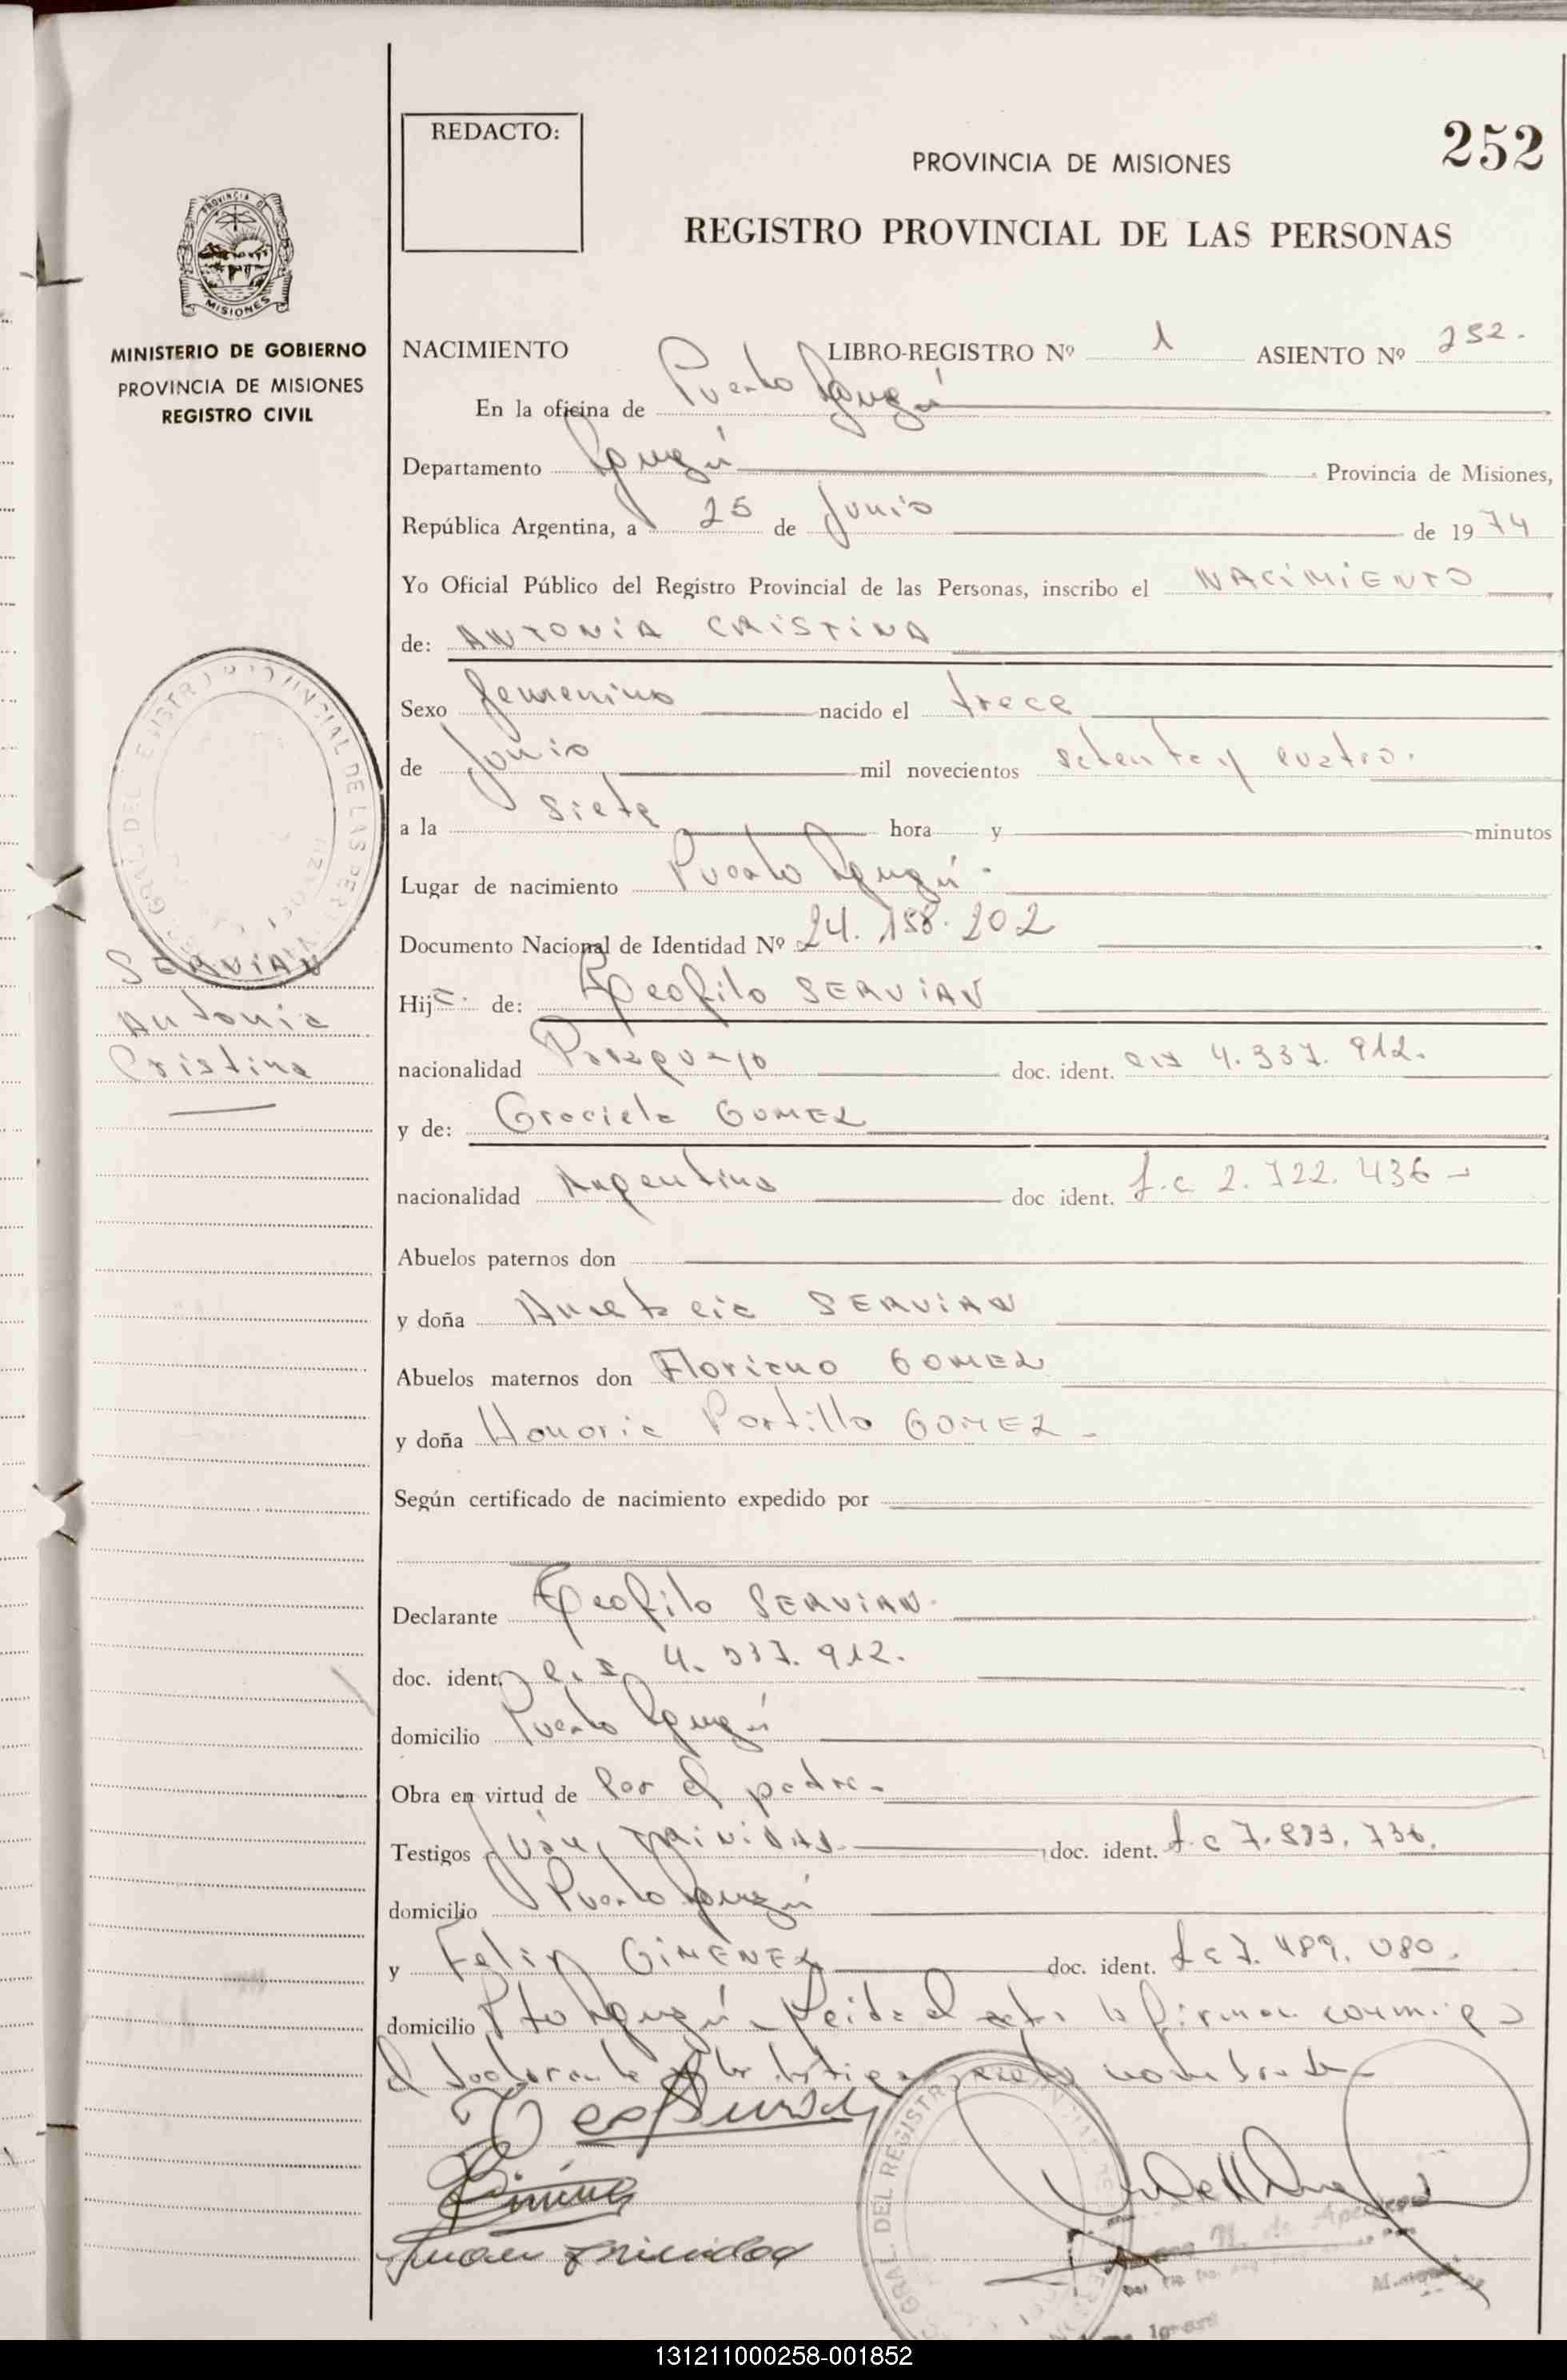 REDACTO:
252
PROVINCIA DE MISIONES
REGISTRO PROVINCIAL DE LAS PERSONAS
PROVINCIA DE
MISIONES
MINISTERIO DE GOBIERNO
PROVINCIA DE MISIONES
REGISTRO CIVIL
NACIMIENTO LIBRO-REGISTRO Nº 1 ASIENTO Nº 252.
En la oficina de Puerto Iguazú
Departamento Iguazú Provincia de Misiones,
República Argentina, a 25 de Junio de 1974
Yo Oficial Público del Registro Provincial de las Personas, inscribo el NACIMIENTO
de: ANTONIA CRISTINA
Sexo femenino nacido el trece
de Junio mil novecientos setenta y cuatro.
a la siete hora y minutos
Lugar de nacimiento Puerto Iguazú.
Documento Nacional de Identidad Nº 24.158.202
SERVIAN
Antonia
Cristina
Hija de: Teofilo SERVIAN
nacionalidad Paraguayo doc. ident. 4.337.912.
y de: Graciela GOMEZ
nacionalidad Argentina doc ident. L.c 2.722.436
Abuelos paternos don
y doña SERVIAN
Abuelos maternos don Floriano GOMEZ
y doña Honoria Portillo GOMEZ
Según certificado de nacimiento expedido por
Declarante Teofilo SERVIAN.
doc. ident. 4.337.912.
domicilio Puerto Iguazú
Obra en virtud de Por el padre
Testigos Juan, TRINIDAD doc. ident.
domicilio Puerto Iguazú
y Felix GIMENEZ doc. ident. 7.489.080.
domicilio Pto Iguazú. Leida el acta la firman conmigo
el declarante y los testigos nombrados
Juan Trinidad
131211000258-001852